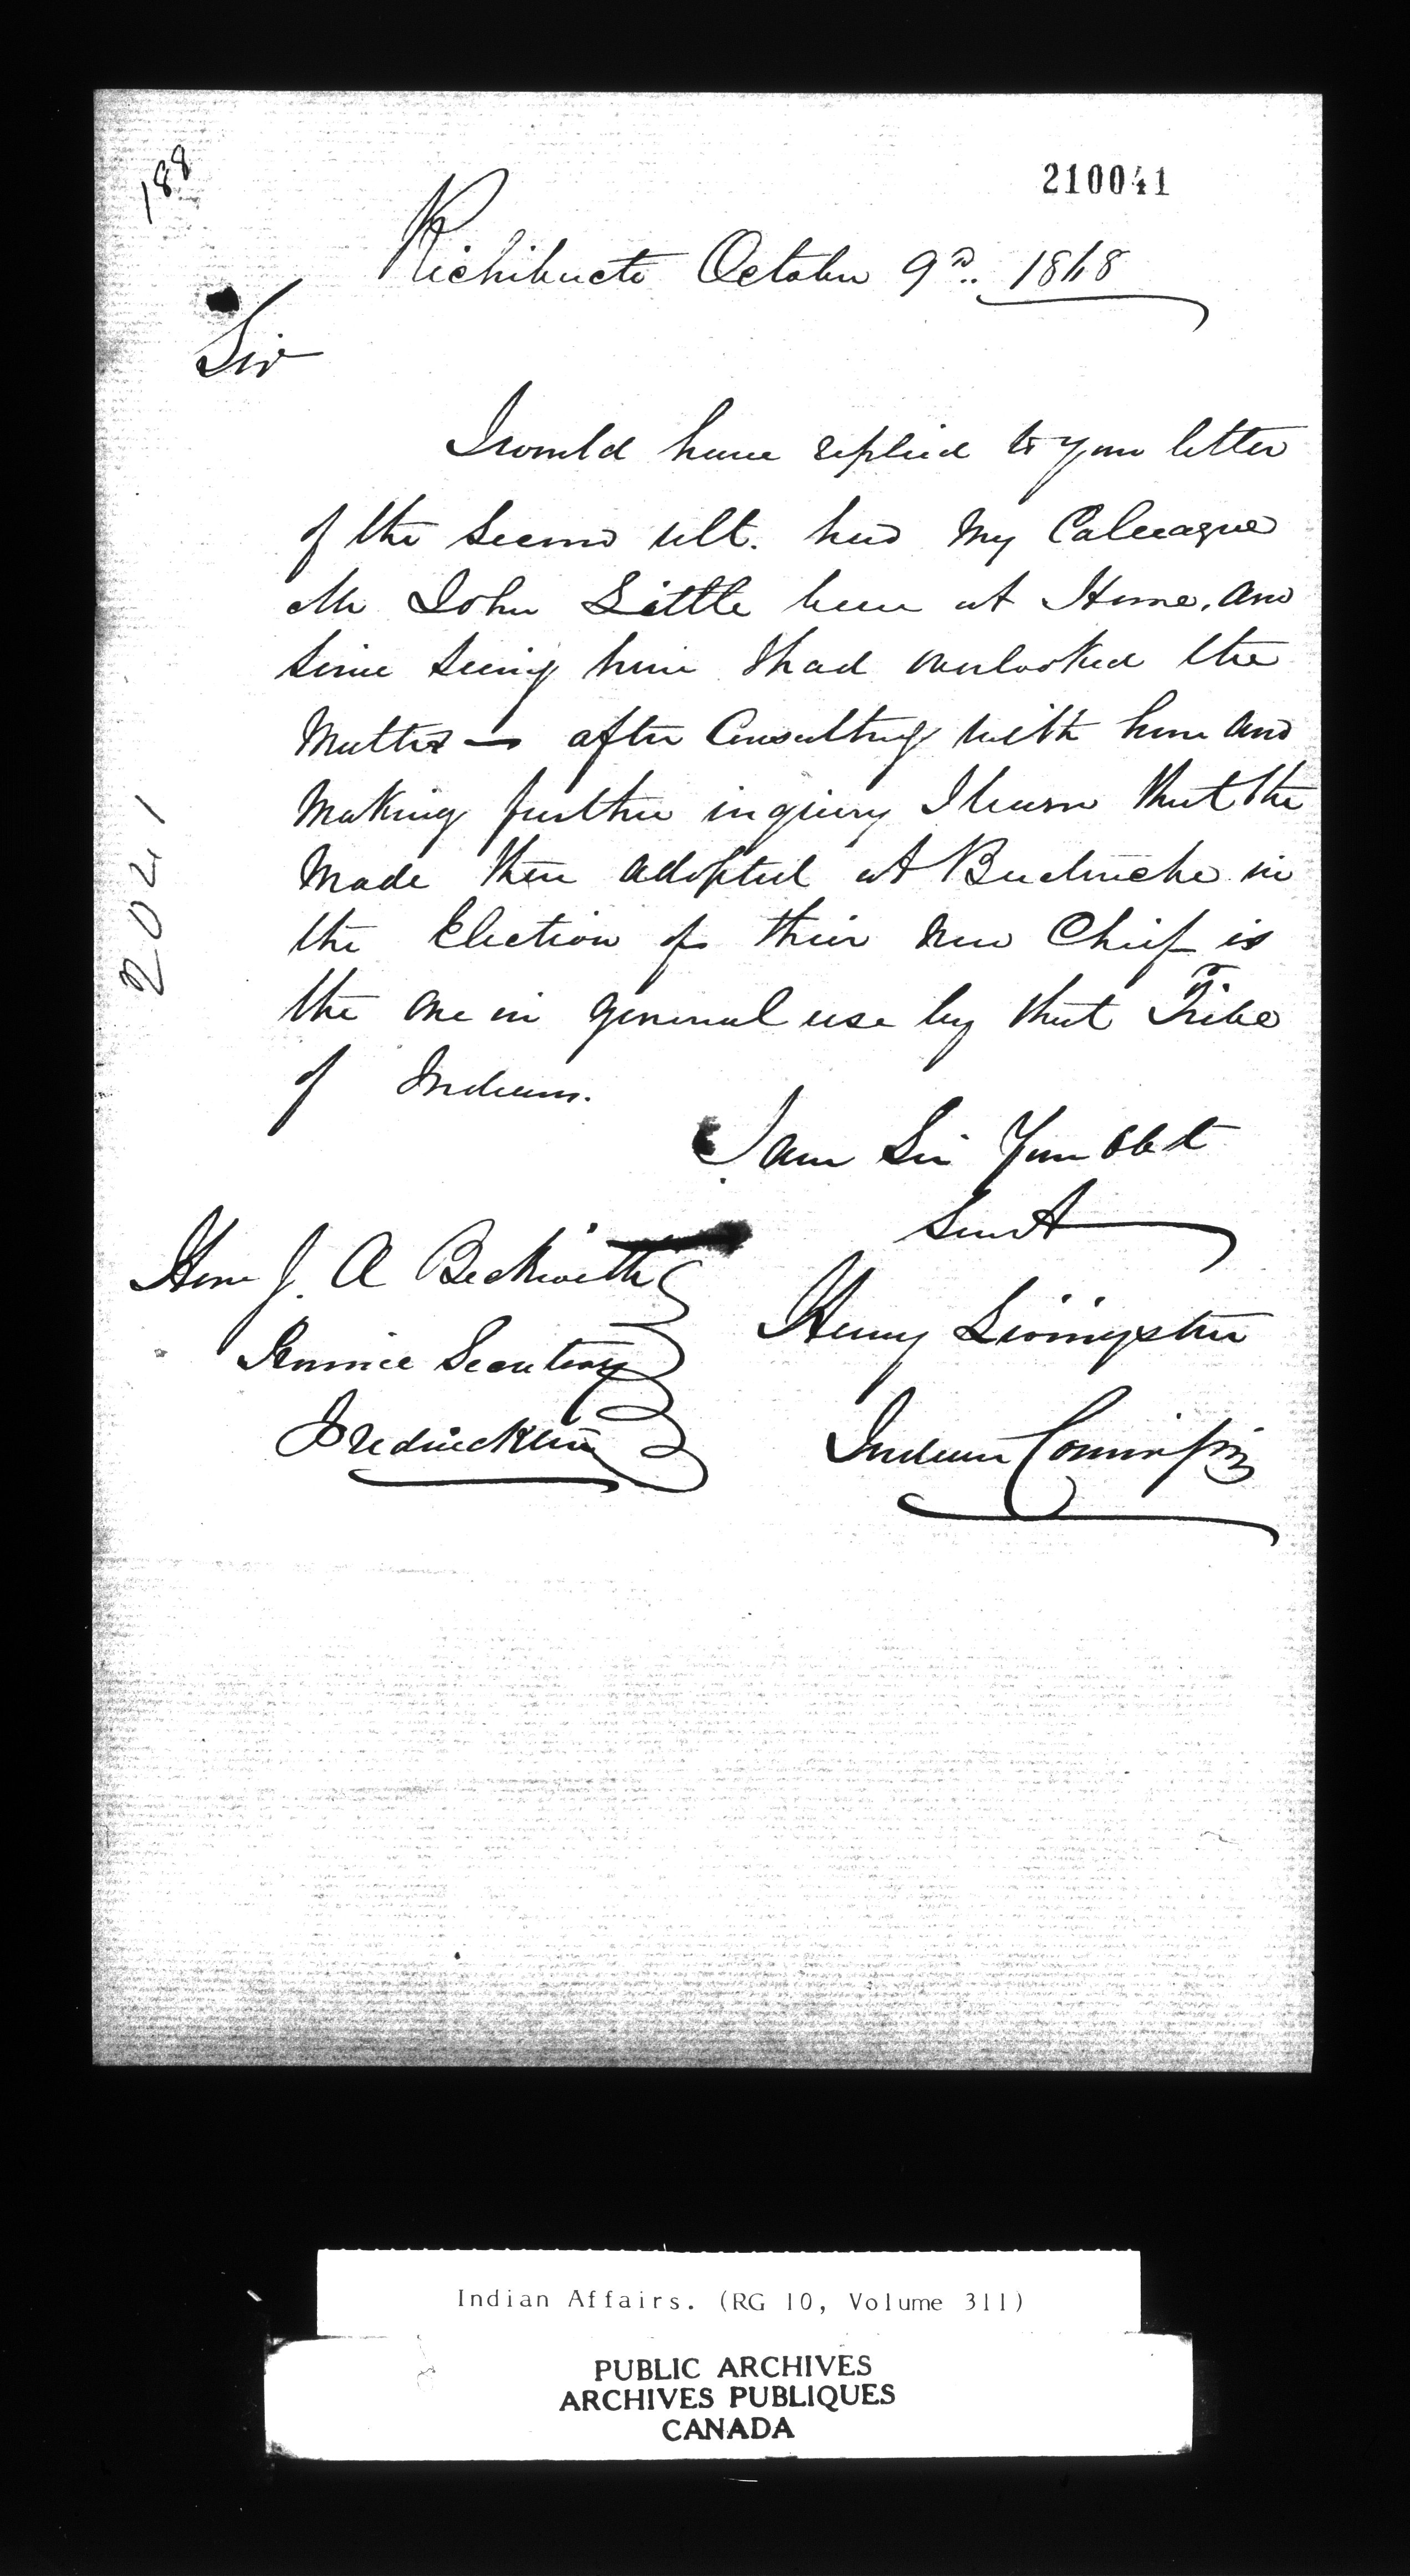 188
210041
Richibucto October 9th 1868
Sir
I would have replied to your letter
of the second ult. had My Colleague
Mr John Little been at Home, and
since seeing him I had overlooked the
Matter — after Consulting with him and
Making further inquiry I learn that the
Made then adopted at Buctuche in
the Election of their New Chief is
the one in general use by that Tribe
of Indians.
2021
I am Sir Your Obt
Servt
Hon J. A Beckwith
Provincial Secretary
Fredrickton
Henry Livingston
Indian Commissi
Indian Affairs. (RG 10, Volume 311)
PUBLIC ARCHIVES
ARCHIVES PUBLIQUES
CANADA